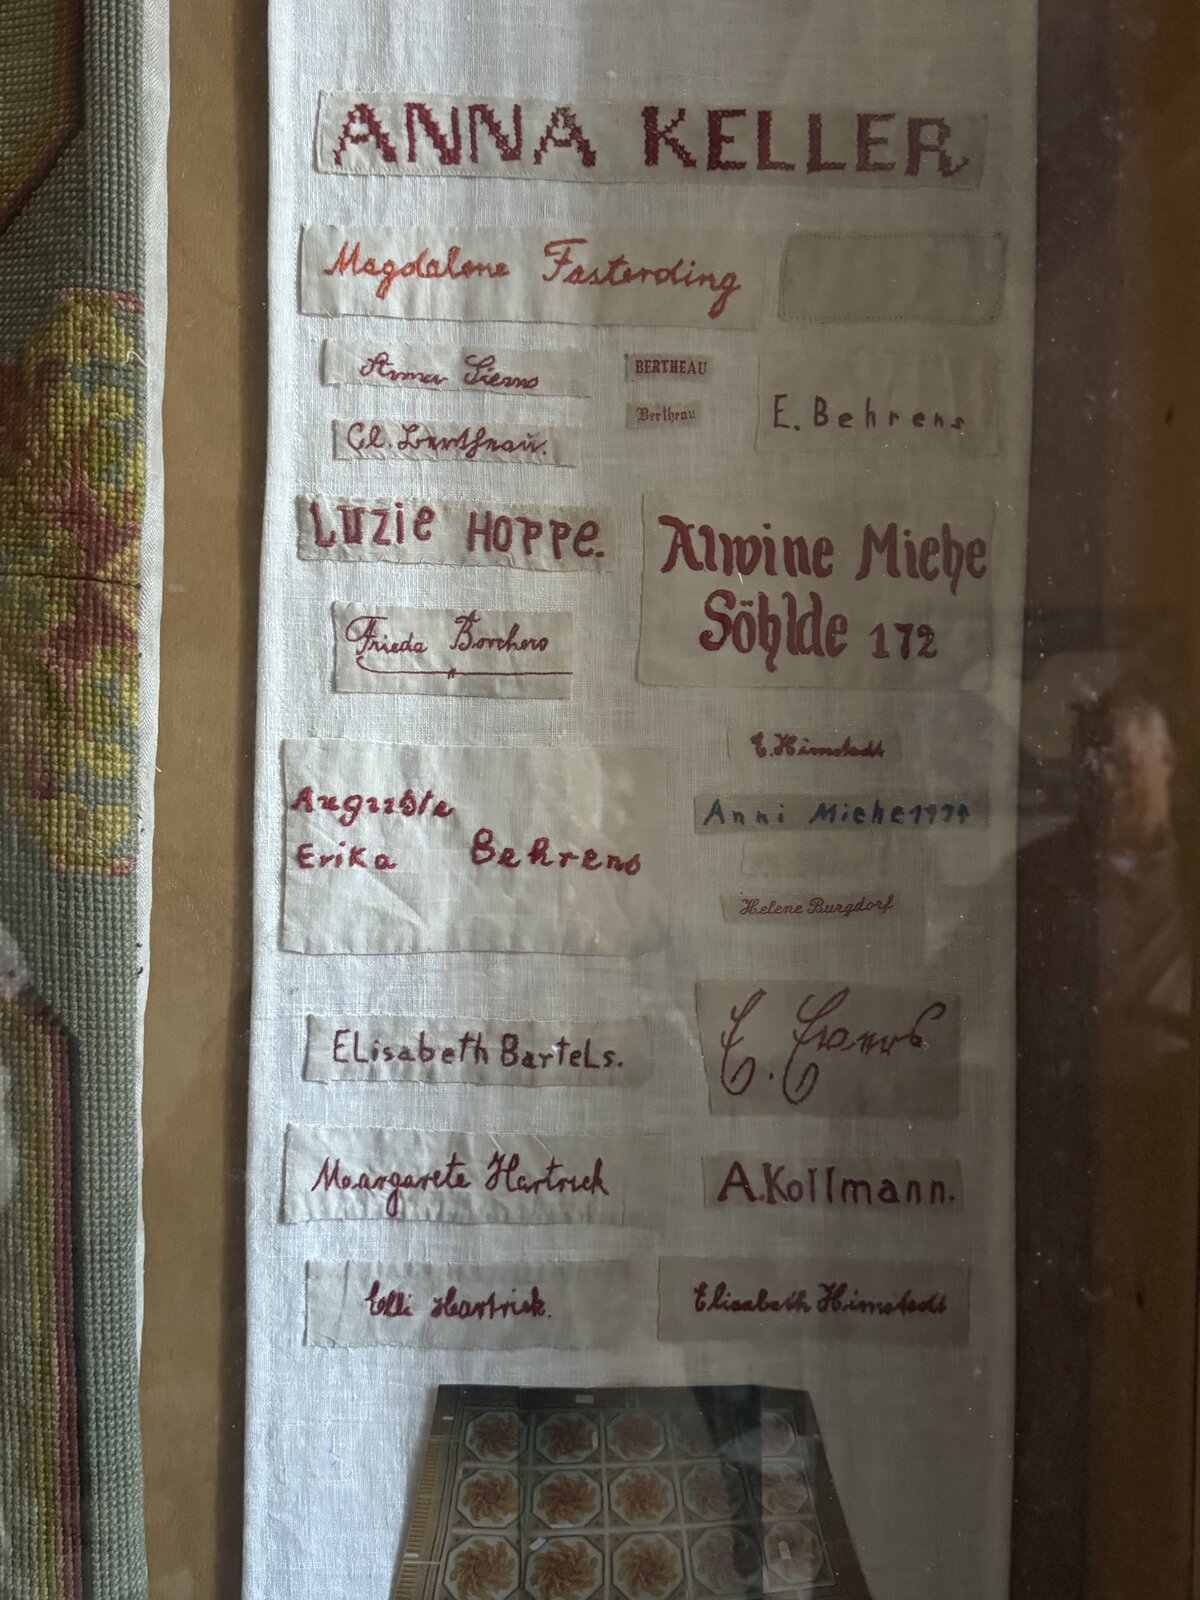 ANNA KELLER
Magdalene Fasterding
Anna
BERTHEAU
Bertheau
E. Behrens
Cl. Bertheau.
LUZIE HOPPE.
Alwine Miehe
Söhlde 172
Frieda Borchers
E. Himstedt
Auguste
Erika Behrens
Anni Miehe
Helene Burgdorf
ELisabeth BarteLs.
E. Evers
Margarete Hartrick
A.Kollmann.
Elli Hartrick.
Elisabeth Himstedt